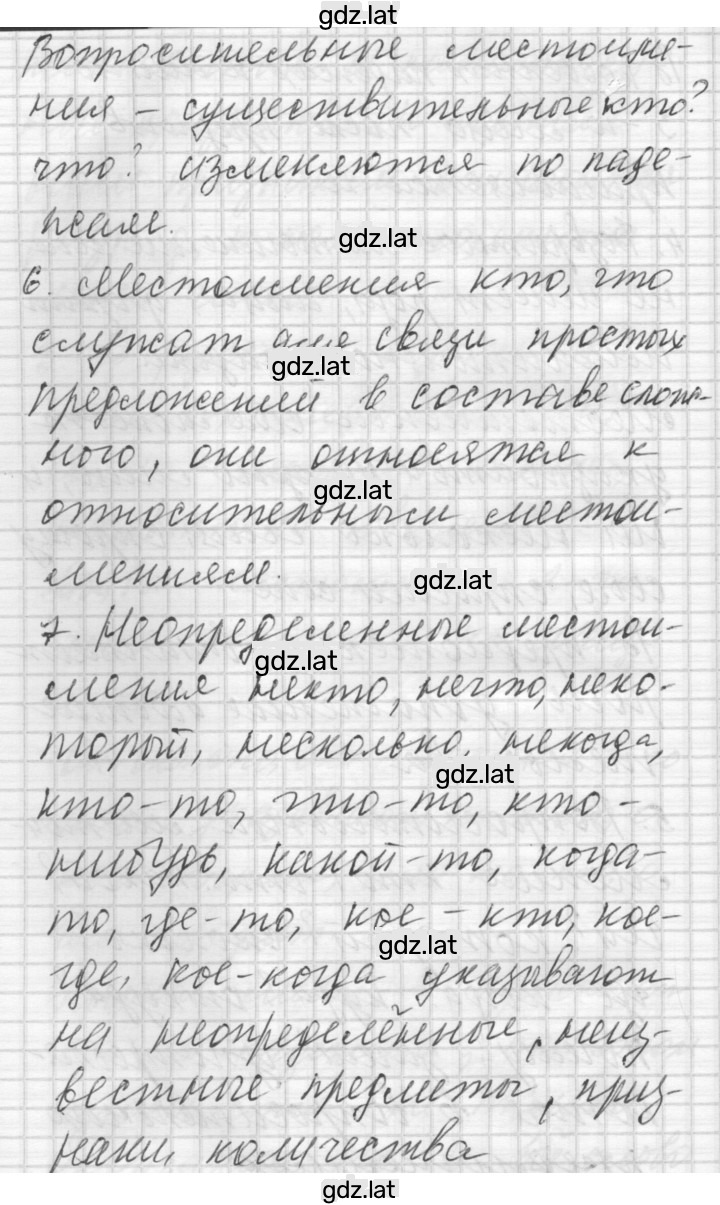 gdz.lat
Вопросительные местоиме-
ния – существительные кто?
что? изменяются по паде-
жам.
gdz.lat
6. Местоимения кто, что
служат для связи простых
gdz.lat
предложений в составе слож-
ного, они относятся к
gdz.lat
относительным местои-
мениям.
gdz.lat
7. Неопределенные местои-
gdz.lat
мения некто, нечто, неко-
торый, несколько, некогда,
gdz.lat
кто-то, что-то, кто-
нибудь, какой-то, когда-
то, где-то, кое-кто, кое-
gdz.lat
где, кое-когда указывают
на неопределённые, неиз-
вестные предметы, приз-
наки, количества
gdz.lat